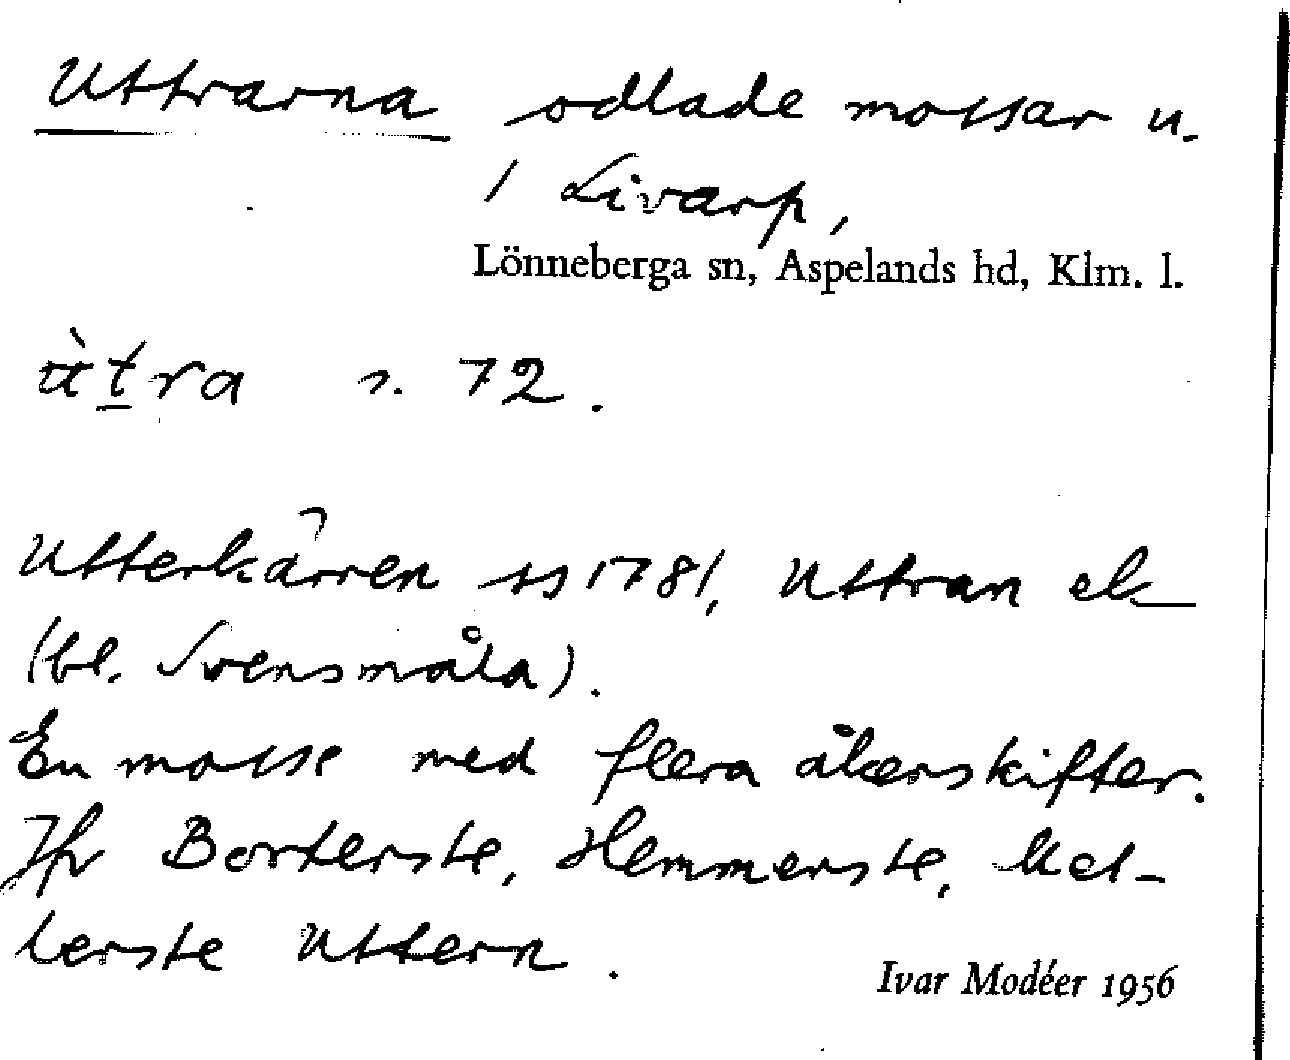 Uttrarna odlade mossar u.
/ Livarp,
Lönneberga sn, Aspelands hd, Klm. l.
ùtra s. 72.
Utterkärren ss 1781, Uttran ek
(bl. Svensmåla).
En mosse med flera åkerskifter.
Jfr Borterste, Hemmerste, Mel-
lerste Uttern.
Ivar Modéer 1956